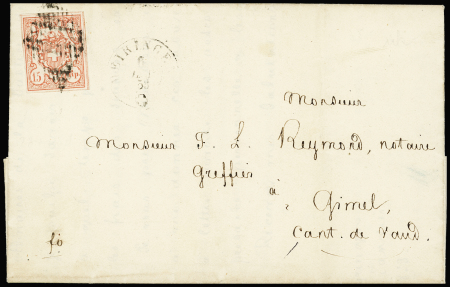 15 Rp.
Monsieur
Monsieur F. L. Reymond, notaire
Greffier
à
Gimel,
Cant. de Vaud.
fo